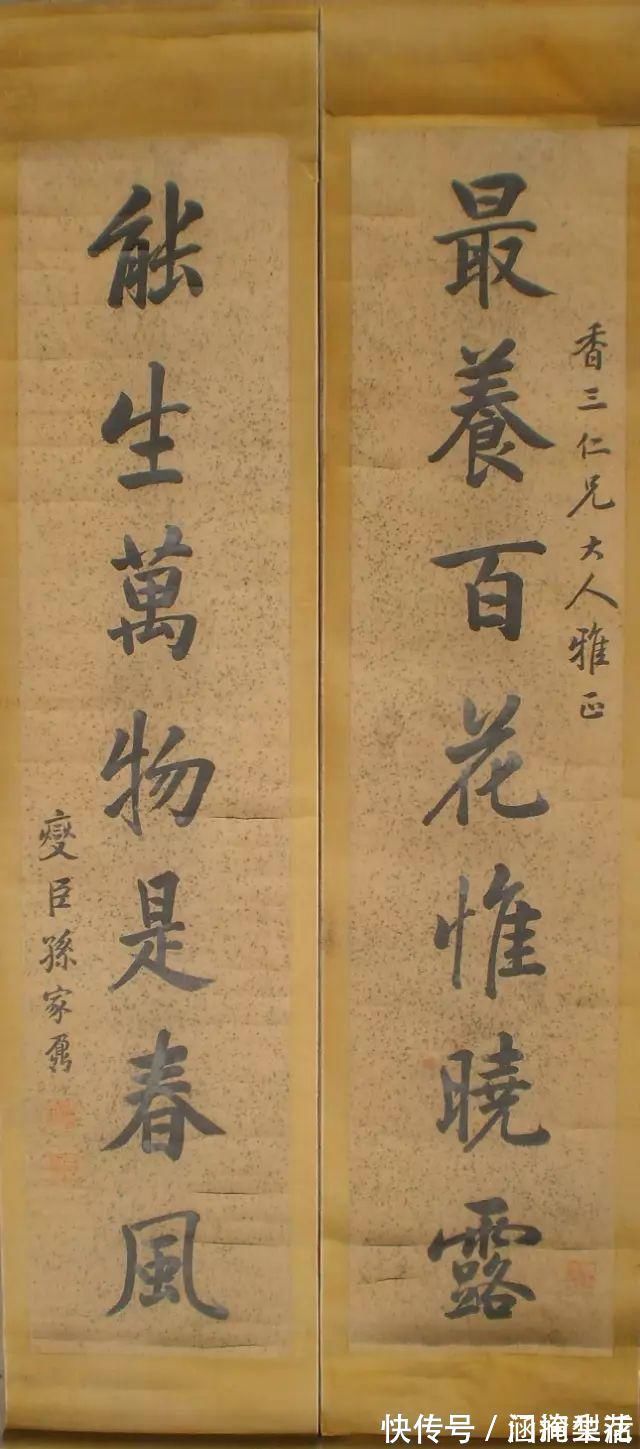 香三仁兄大人雅正
最養百花惟曉露
能生萬物是春風
燮臣孫家鼐
快传号／涵掩梨花